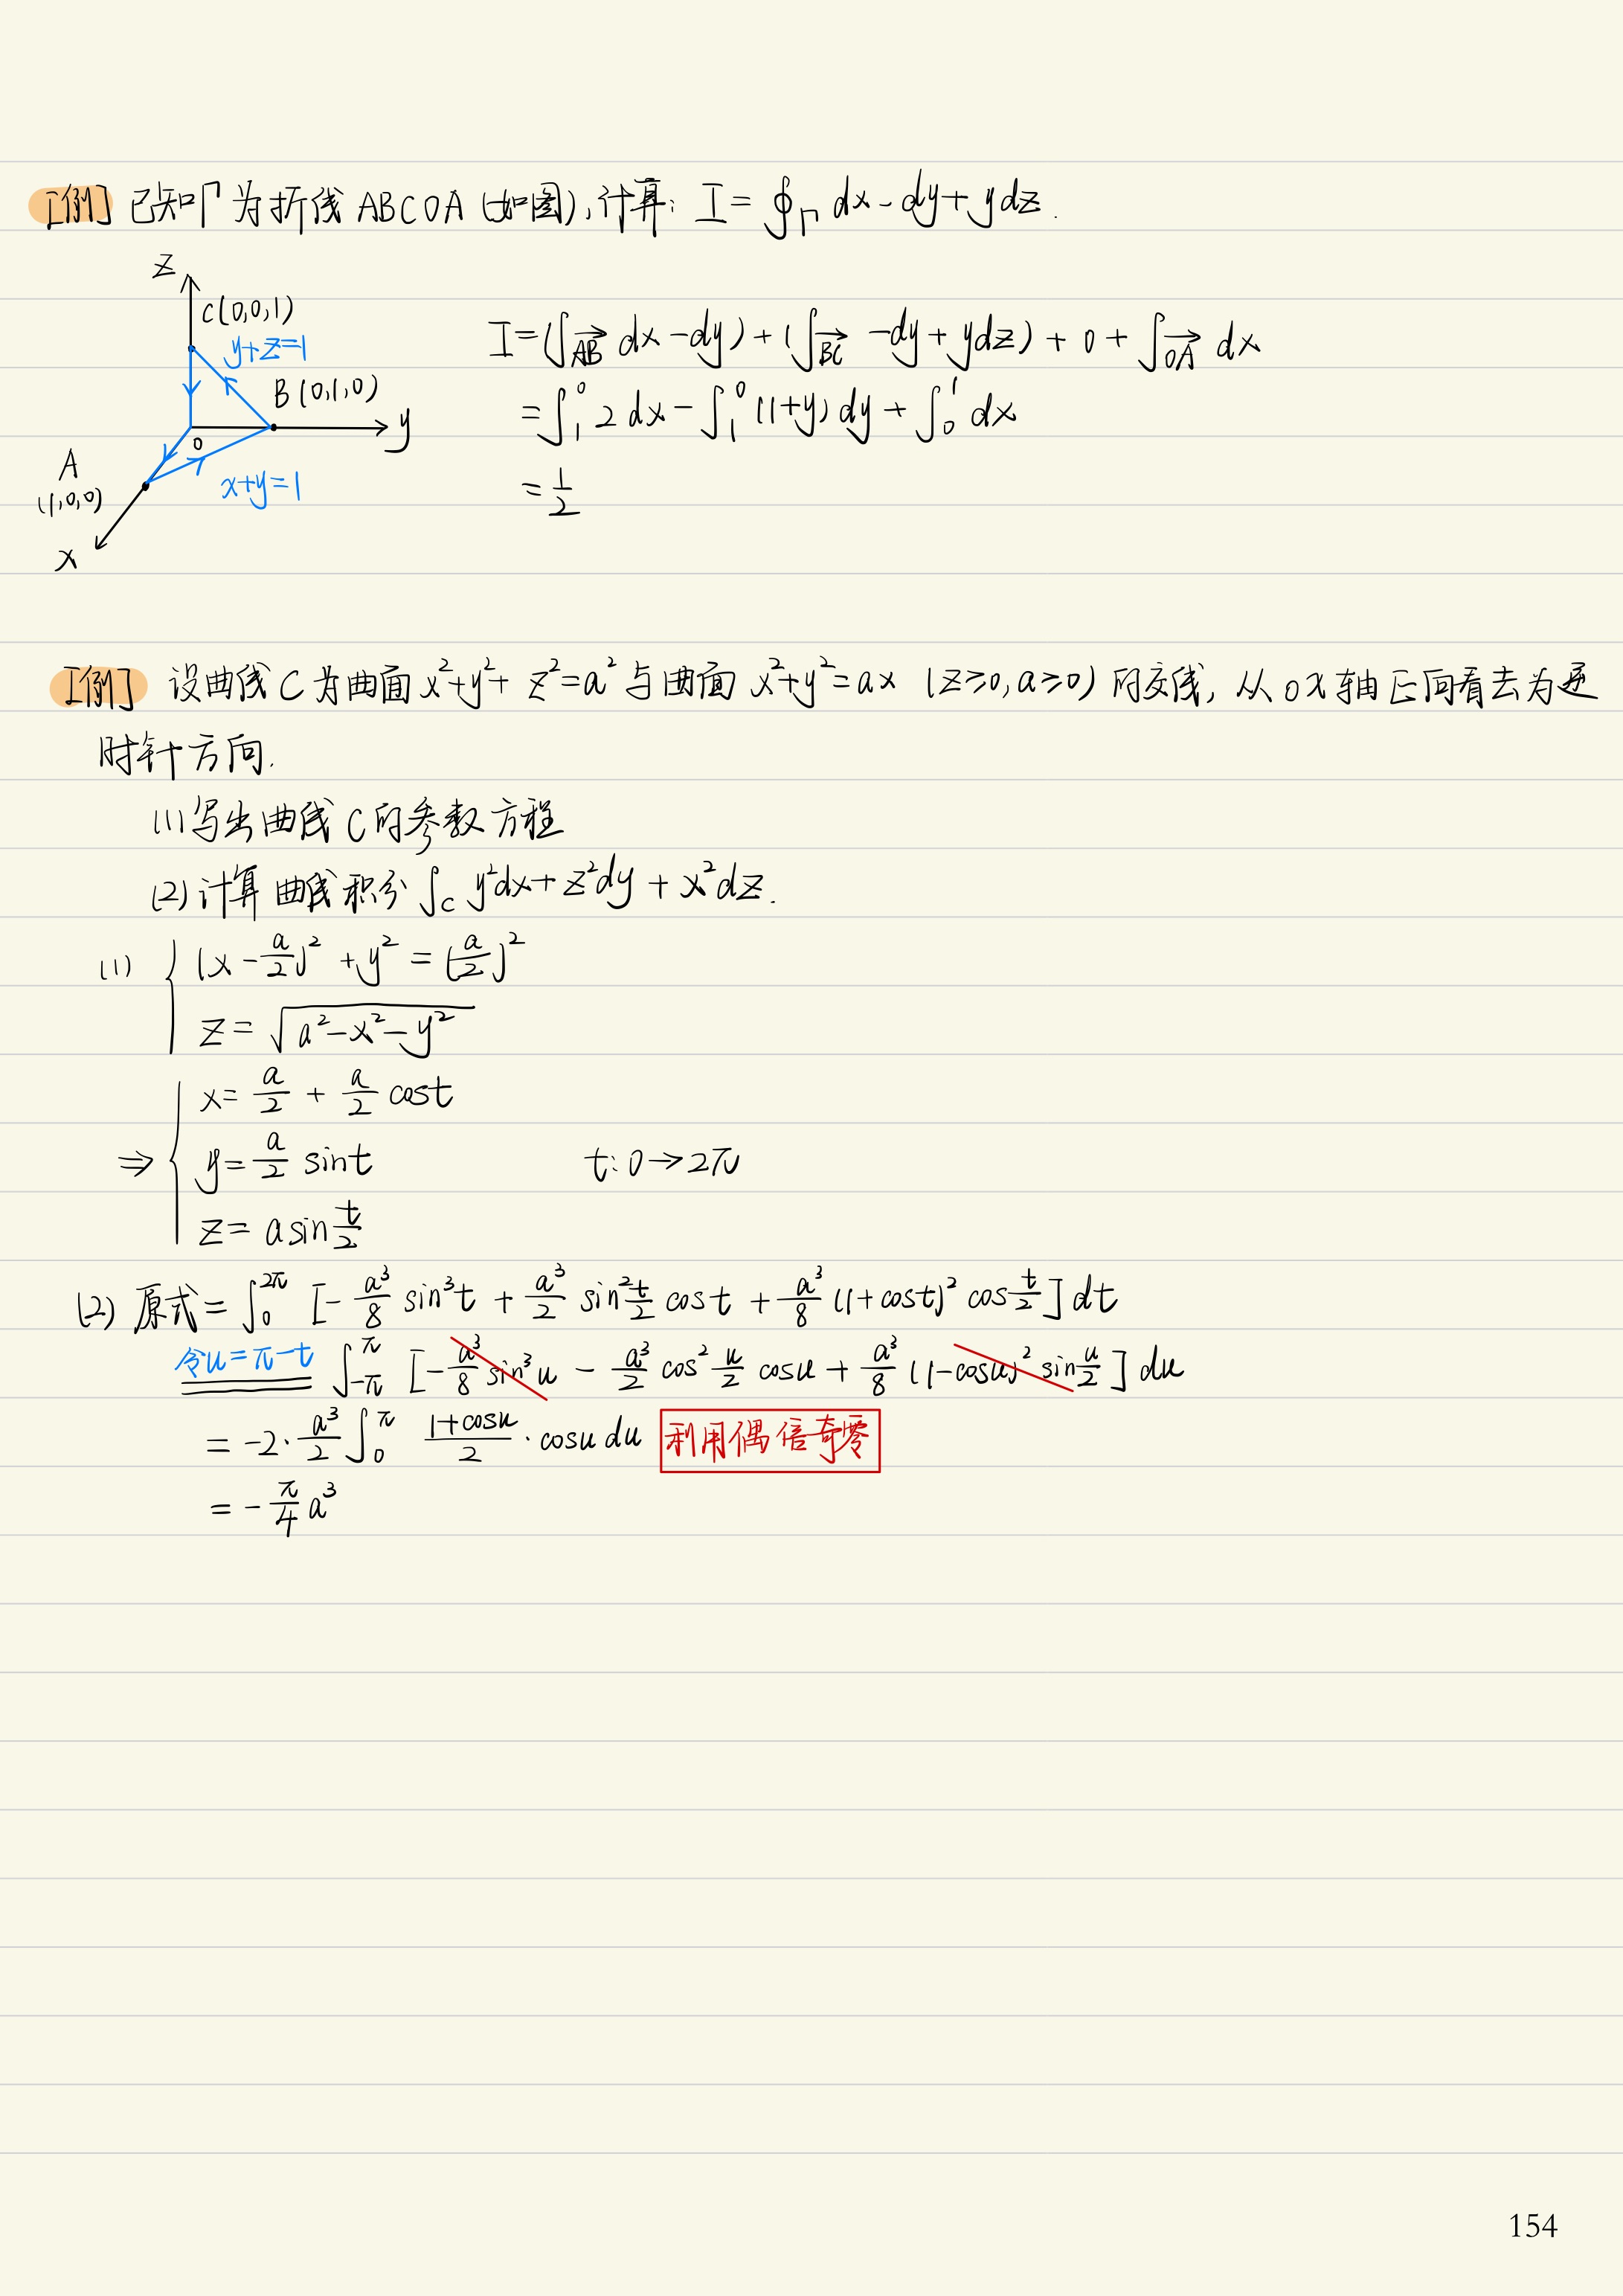 [例] 已知Γ为折线ABCOA(如图),计算: I=∮_Γ dx-dy+ydz.
z
C(0,0,1)
y+z=1
B(0,1,0)
y
o
A
(1,0,0)
x+y=1
x
I=(∫_{\overrightarrow{AB}} dx-dy)+(∫_{\overrightarrow{BC}} -dy+ydz)+0+∫_{\overrightarrow{OA}} dx
=∫_1^0 2dx-∫_1^0 (1+y)dy+∫_0^1 dx
=\frac{1}{2}
[例] 设曲线C为曲面x²+y²+z²=a²与曲面x²+y²=ax (z≥0,a≥0)的交线,从ox轴正向看去为逆
时针方向.
(1)写出曲线C的参数方程
(2)计算曲线积分∫_C y²dx+z²dy+x²dz.
(1) { (x-\frac{a}{2})²+y²=(\frac{a}{2})²
z=\sqrt{a²-x²-y²}
⇒ { x=\frac{a}{2}+\frac{a}{2}cost
y=\frac{a}{2}sint t:0→2π
z=asin\frac{t}{2}
(2) 原式=∫_0^{2π} [-\frac{a³}{8}sin³t+\frac{a³}{2}sin²\frac{t}{2}cost+\frac{a³}{8}(1+cost)²cos\frac{t}{2}]dt
令u=π-t ∫_{-π}^{π} [-\frac{a³}{8}sin³u-\frac{a³}{2}cos²\frac{u}{2}cosu+\frac{a³}{8}(1-cosu)²sin\frac{u}{2}]du
=-2·\frac{a³}{2}∫_0^π \frac{1+cosu}{2}·cosudu 利用偶倍奇零
=-\frac{π}{4}a³
154